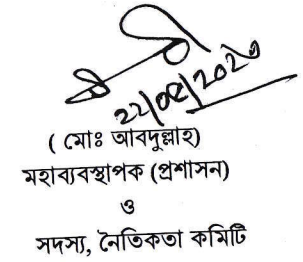 ( মোঃ আবদুল্লাহ)
মহাব্যবস্থাপক (প্রশাসন)
ও
সদস্য, নৈতিকতা কমিটি